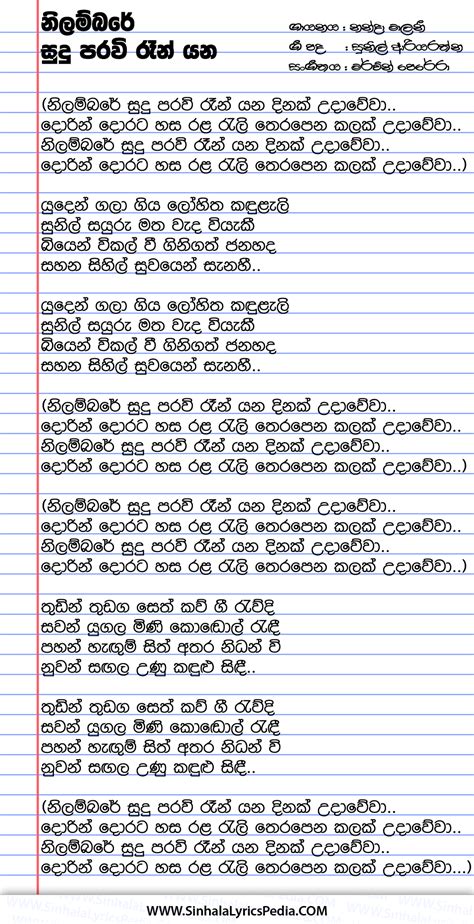 නිලම්බරේ
සුදු පරවි රෑන් යන
ගායනය : නන්දා මාලනී
ගී පද : සුනිල් ආරියරත්න
සංගීතය : රෝහණ වීරසිංහ
(නිලම්බරේ සුදු පරවි රෑන් යන දිනක් උදාවේවා..
දොරින් දොරට හස රළ රැලි තෙරපෙන කලක් උදාවේවා..
නිලම්බරේ සුදු පරවි රෑන් යන දිනක් උදාවේවා..
දොරින් දොරට හස රළ රැලි තෙරපෙන කලක් උදාවේවා..)
යුදෙන් ගලා ගිය ලෝහිත කඳුළැලි
සුනිල් සයුරු මත වැද වියැකී
බියෙන් විකල් වී ගිනිගත් ජනහද
සහන සිහිල් සුවයෙන් සැනහී..
යුදෙන් ගලා ගිය ලෝහිත කඳුළැලි
සුනිල් සයුරු මත වැද වියැකී
බියෙන් විකල් වී ගිනිගත් ජනහද
සහන සිහිල් සුවයෙන් සැනහී..
(නිලම්බරේ සුදු පරවි රෑන් යන දිනක් උදාවේවා..
දොරින් දොරට හස රළ රැලි තෙරපෙන කලක් උදාවේවා..
නිලම්බරේ සුදු පරවි රෑන් යන දිනක් උදාවේවා..
දොරින් දොරට හස රළ රැලි තෙරපෙන කලක් උදාවේවා..)
(නිලම්බරේ සුදු පරවි රෑන් යන දිනක් උදාවේවා..
දොරින් දොරට හස රළ රැලි තෙරපෙන කලක් උදාවේවා..
නිලම්බරේ සුදු පරවි රෑන් යන දිනක් උදාවේවා..
දොරින් දොරට හස රළ රැලි තෙරපෙන කලක් උදාවේවා..)
තුඩින් තුඩග සෙත් කව් ගී රැව්දි
සවන් යුගල මිණි කොඬොල් රැඳී
පහන් හැඟුම් සිත් අතර නිධන් වි
නුවන් සඟල උණු කඳුළු සිඳී..
තුඩින් තුඩග සෙත් කව් ගී රැව්දි
සවන් යුගල මිණි කොඬොල් රැඳී
පහන් හැඟුම් සිත් අතර නිධන් වි
නුවන් සඟල උණු කඳුළු සිඳී..
(නිලම්බරේ සුදු පරවි රෑන් යන දිනක් උදාවේවා..
දොරින් දොරට හස රළ රැලි තෙරපෙන කලක් උදාවේවා..
නිලම්බරේ සුදු පරවි රෑන් යන දිනක් උදාවේවා..
දොරින් දොරට හස රළ රැලි තෙරපෙන කලක් උදාවේවා...)
www.SinhalaLyricsPedia.COM